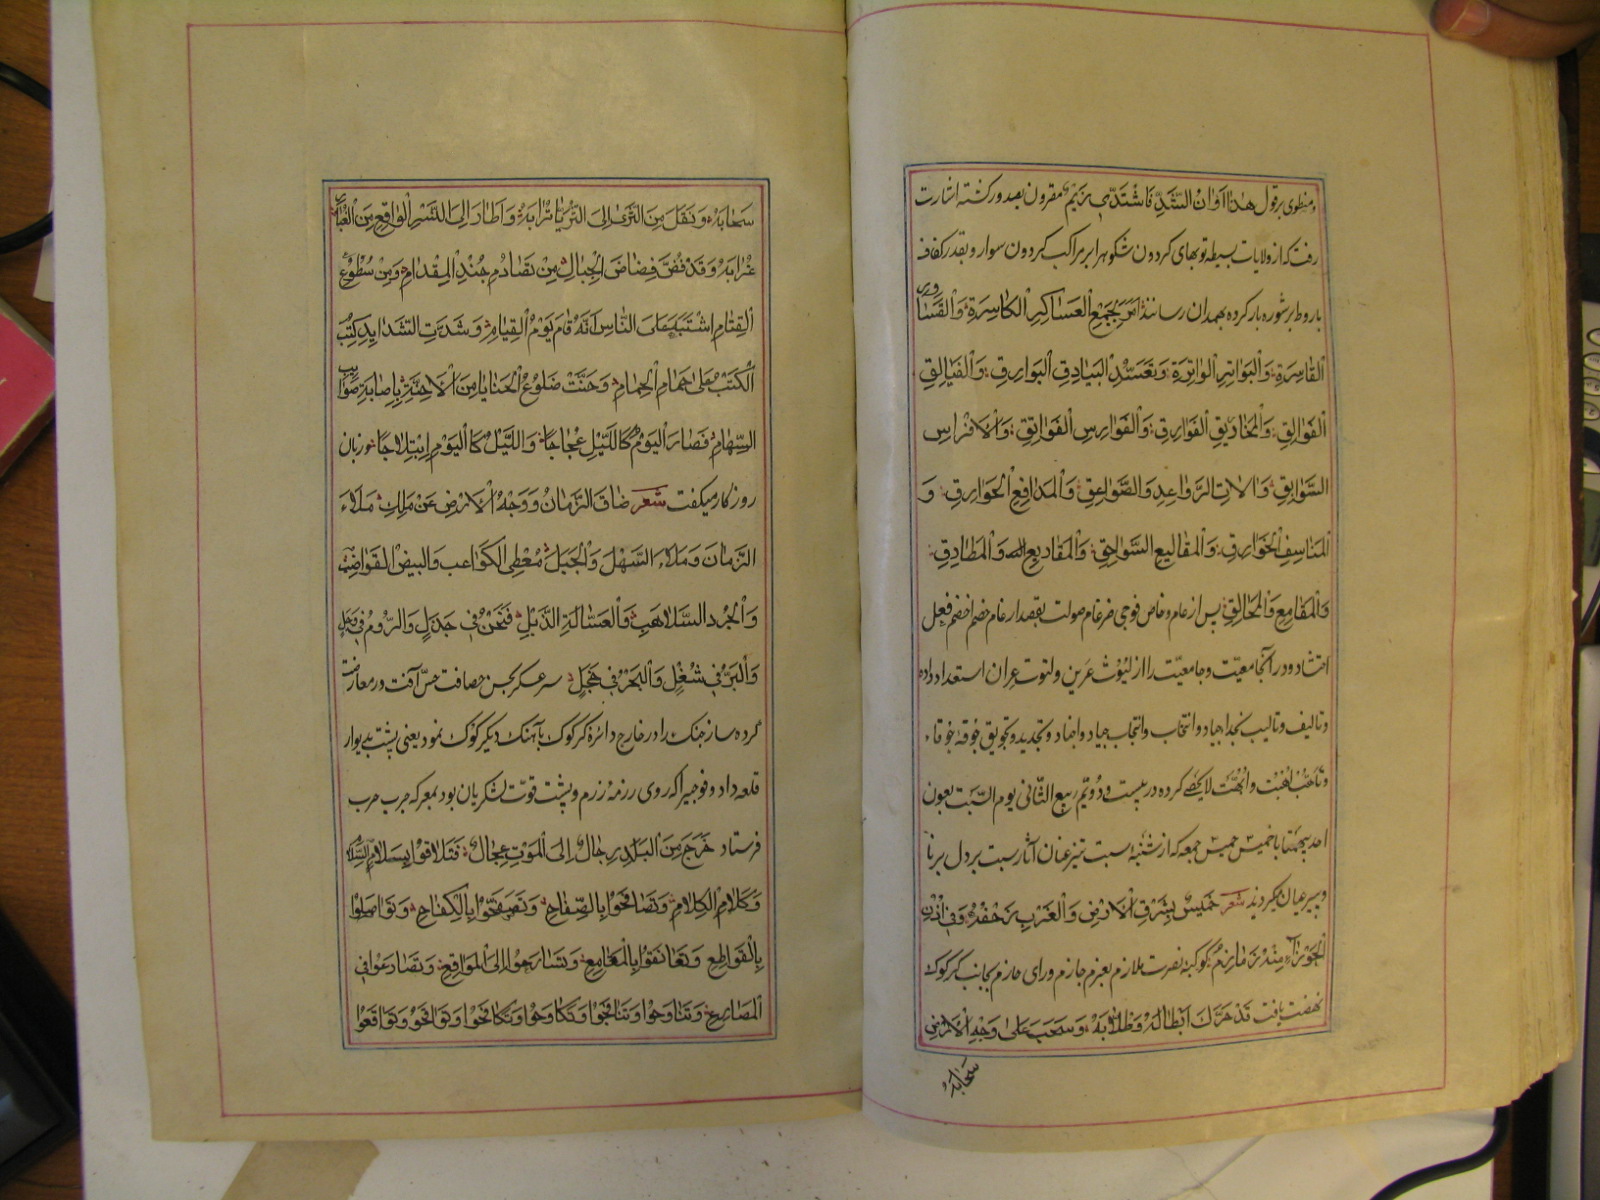 و منطوی بر قول هذا اوان الشد فاشتدی زیم مقرون بصدور کشته اشارت
رفت که از ولایات بسیطه توپهای کردون شکوه برابر مراکب کردون سوار و بقدر کفاف
باروط بر شوره بار کرده بهمدان رسانند امر بجمع العساکر الکاسرة والقساور
القاسرة والبواتر الواترة وتعسند البیادق البوارق والفیالق
الفوالق والمخاریق الفوارق والفوارس الفوائق والافراس
السوابق والات الرواعد والصواعق والمدافع الحوارق و
المناسف الخوارق والمقالیع السواحق والمقادیع والمطارق
والمقامع والمحالق پس از عام و خاص فوجی ضرغام صولت بقصد ارغام خصم فعل
احتشاد و در آنجا معیت و جامعیت را از لیوث عرین و لتوت عران استعداد داده
و تالیف و تالیب نجدا جیاد و انتخاب و انتجاب جیاد و انجاد و تجدید و تجویق جوقه جوقاء
و تأهب اهبت و ابهت لایحصی کرده در بیست و دویم ربیع الثانی یوم السبت بعون
احد بیهمتا با خمیس خمیس جمعه که از شنبه سبت تیز عنان آثار سبت بر دل برنا
و پیر عیان میکردید شعر خمیس بشرق الارض والغرب زحفه وفی اذن
الجوزاء منه زمازم کوکبه نصرت ملازم بعزم جازم و رای حازم بجانب کرکوک
نهضت یافت قد حرک ابطاله وطلابه وسحب علی وجه الارض
سحابه
سحابه ونقل من الثری الی الثریا ترابه واطار الی النسر الواقع من الغبار
غرابه وقد فض فضاض الجبال من تصادم جند المقدام ومن سطوع
القتام اشتبه علی الناس انه قام یوم القیام وشدت الشداید کتب
الکتب علی حمام الحمام وحنت ضلوع الحنایا من الاحنة باصابة صوایب
السهام فصار الیوم کاللیل عجاجا واللیل کالیوم ابتلاجا و زبان
روزکار میکفت شعر ضاق الزمان ووجه الارض عن ملک ملاء
الزمان وملاء السهل والجبل معطی الکواعب والبیض القواضب
والجرد السلاهب والعسالة الذبل فنحن فی جذل والروم فی وجل
والبر فی شغل والبحر فی خجل سرعسکر بحسن حصافت حس آفت در معارضت
کرده ساز جنک را در خارج دائرۀ کرکوک بآهنک دیکر کوک نمود یعنی پشت بدیوار
قلعه داد و فوجیرا که روی رزمۀ رزم و پشت قوت لشکریان بود بمعرکه حرب
فرستاد خرج من البلاد رجال الی الموت عجال فتلاقوا بسلام السلام
وکلام الکلام وتصافحوا بالصفاح وتصفحوا بالکفاح وتواصلوا
بالقواطع وتعانقوا بالمقامع وتسارعوا الی المواقع وتصارعوا فی
المصارع وتناوحوا وتنافحوا وتکاوحوا وتکافحوا وتوافحوا وتواقعوا